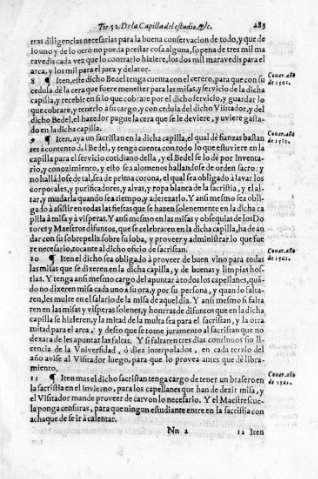 Tit. 52. De la Capilla del estudio, &c. 283
tras diligencias necesarias para la buena conservacion de todo, y que de
lo uno y de lo otro no pueda prestar cosa alguna, so pena de tres mil ma
ravedis cada vez que lo contrario hiziere, los dos mil maravedis para el
arca, y los mil para el juez y delator.
8 ¶ Iten, este dicho Bedel tenga cuenta con el cerero, para que con su
cedula dè la cera que fuere menester para las missas, y servicio de la dicha
capilla, y recebir en si lo que cobrare por el dicho servicio, y guardar lo
que cobrare, y tenerlo a su cargo, y con cedula del dicho Visitador, y del
dicho Bedel, el hazedor pague la cera que se le deviere, y uviere gasta-
do en la dicha capilla.
9 ¶ Iten, aya un sacristan en la dicha capilla, el qual dè fianças bastan
tes a contento del Bedel, y tenga cuenta con todo lo que estuviere en la
capilla para el servicio cotidiano della, y el Bedel se lo dè por Inventa-
rio, y conozimiento, y esto se a alomenos hallandose de orden sacro, y
no hallandose de tal, sea de prima corona, el qual sea obligado a lavar los
corporales, y purificadores, y alvas, y ropa blanca de la sacristia, y el al-
tar, y mudarla quando sea tiempo, y aderezarlo. Y ansi mesmo sea obli-
gado à asistir en todas las fiestas que se hazen solenemente en la dicha ca
pilla à missa y à visperas. Y ansi mesmo en las missas y obsequias de los Do
tores y Maestros difuntos, que se celebraren en la dicha capilla, ha de an
dar con su sobrepelis sobre la loba, y proveer y administrar lo que fue
re necesario, tocante al dicho oficio de sacristan.
10 ¶ Iten el dicho sea obligado à proveer de buen vino para todas
las missas que se dixeren en la dicha capilla, y de buenas y limpias hos-
tias. Y tenga ansi mesmo cargo del apuntar à todos los capellanes, quã-
do no dixeren missa cada uno a su ora, y por su persona, y quan lo falta-
ren, les multe en el salario de la missa de aquel dia. Y ansi mesmo si falta
ren en las missas y visperas solenes, y honrras de difuntos que en la dicha
capilla se hizieren, y la mitad de la multa sea para el sacristan, y la otra
mitad para el arca, y desto que se tome juramento al sacristan que no
dexara de les apuntar las faltas. Y si faltaren tres dias continuos sin li-
cencia de la Universidad, ò diez interpolados, en cada tercio del
año avise al Visitador luego, para que lo provea antes que dè libra-
miento.
11 ¶ Iten mas el dicho sacristan tenga cargo de tener un brasero en
la sacristia en el invierno, para los capellanes que han de dezir missa, y
el Visitador mande proveer de carvon lo necesario. Y el Maestrescue-
la ponga censuras, para que ningun estudiante entre en la sacristia con
achaque de se ir à calentar.
Nn 2 12 Iten